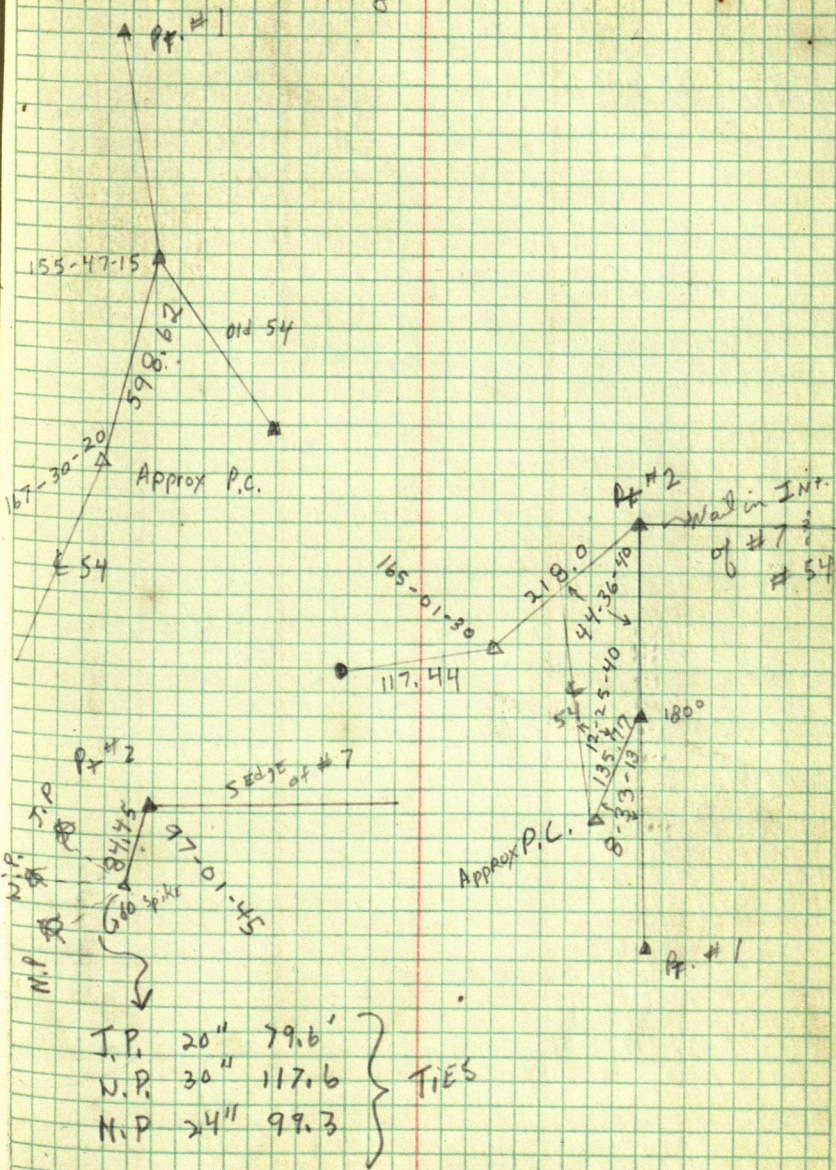 Pt. #1
155-47-15
598.62
Old 54
167-30-20
Approx P.C.
℄ 54
Pt #2
Nail in Int.
of #7 &
#54
218.0
165-01-30
44-36-40
117.44
54
12-25-40
135.77
180°
8-33-13
Approx P.C.
Pt. #1
Pt #2
S Edge of #7
J.P
N.P.
N.P
84.45
97-01-45
60 Spike
J.P. 20" 79.6'
N.P. 30" 117.6
N.P 24" 99.3
TIES